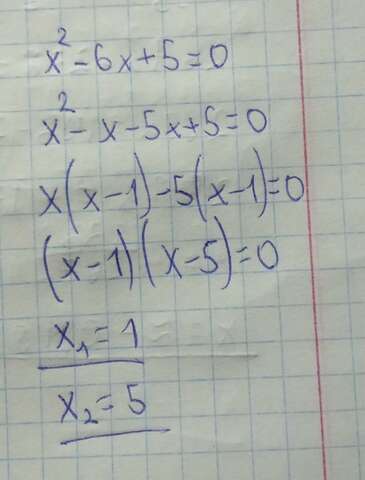 x² - 6x + 5 = 0
x² - x - 5x + 5 = 0
x(x - 1) - 5(x - 1) = 0
(x - 1)(x - 5) = 0
x₁ = 1
x₂ = 5